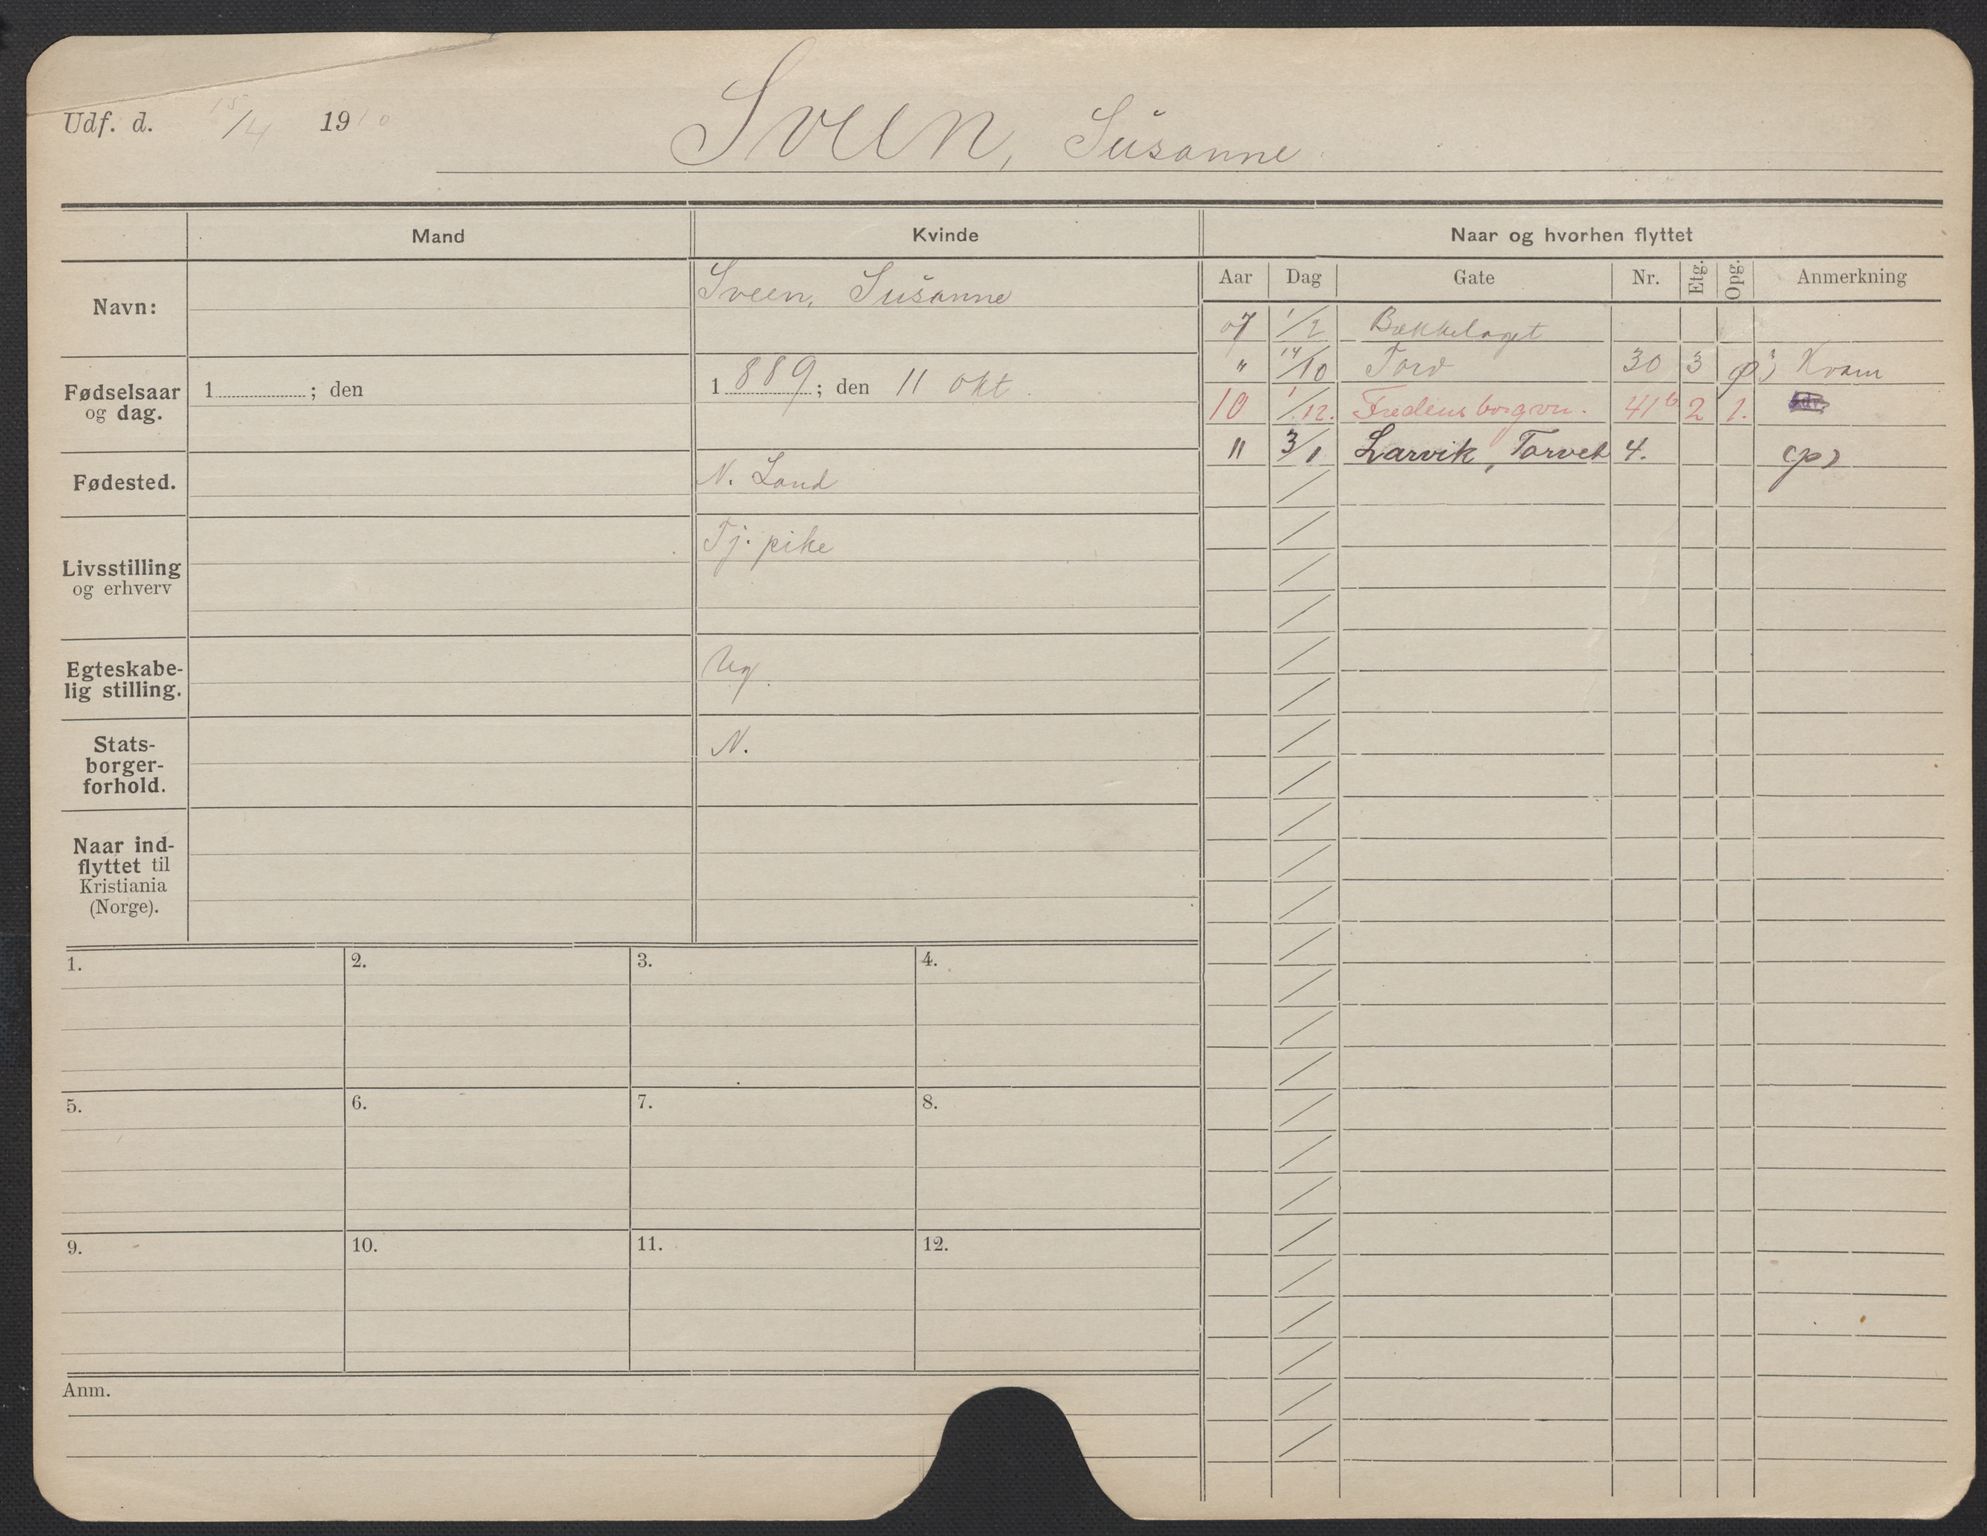 Udf. d. 15/4 1910
Sveen, Susanne
Mand Kvinde Naar og hvorhen flyttet
Aar Dag Gate Nr. Etg. Opg. Anmerkning
Navn:
Sveen, Susanne
Fødselsaar og dag.
1 ; den
1889; den 11 okt.
Fødested.
N. Land
Livsstilling og erhverv
Tj. pike
Egteskabe-
lig stilling.
Ug.
Stats-
borger-
forhold.
N.
Naar ind-
flyttet til
Kristiania
(Norge).
07 1/2 Bækkelaget
" 14/10 Tord 30 3 Kvam
10 1/12. Fredensborgvn. 41b 2 1.
11 3/1 Larvik, Torvet 4. (p)
1. 2. 3. 4.
5. 6. 7. 8.
9. 10. 11. 12.
Anm.